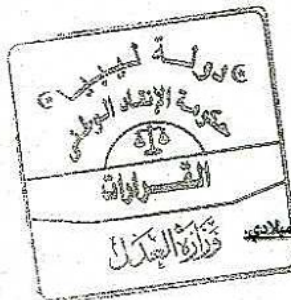 دولة ليبيا
حكومة الإنقاذ الوطني
القرارات
وزارة العدل
ميلادي